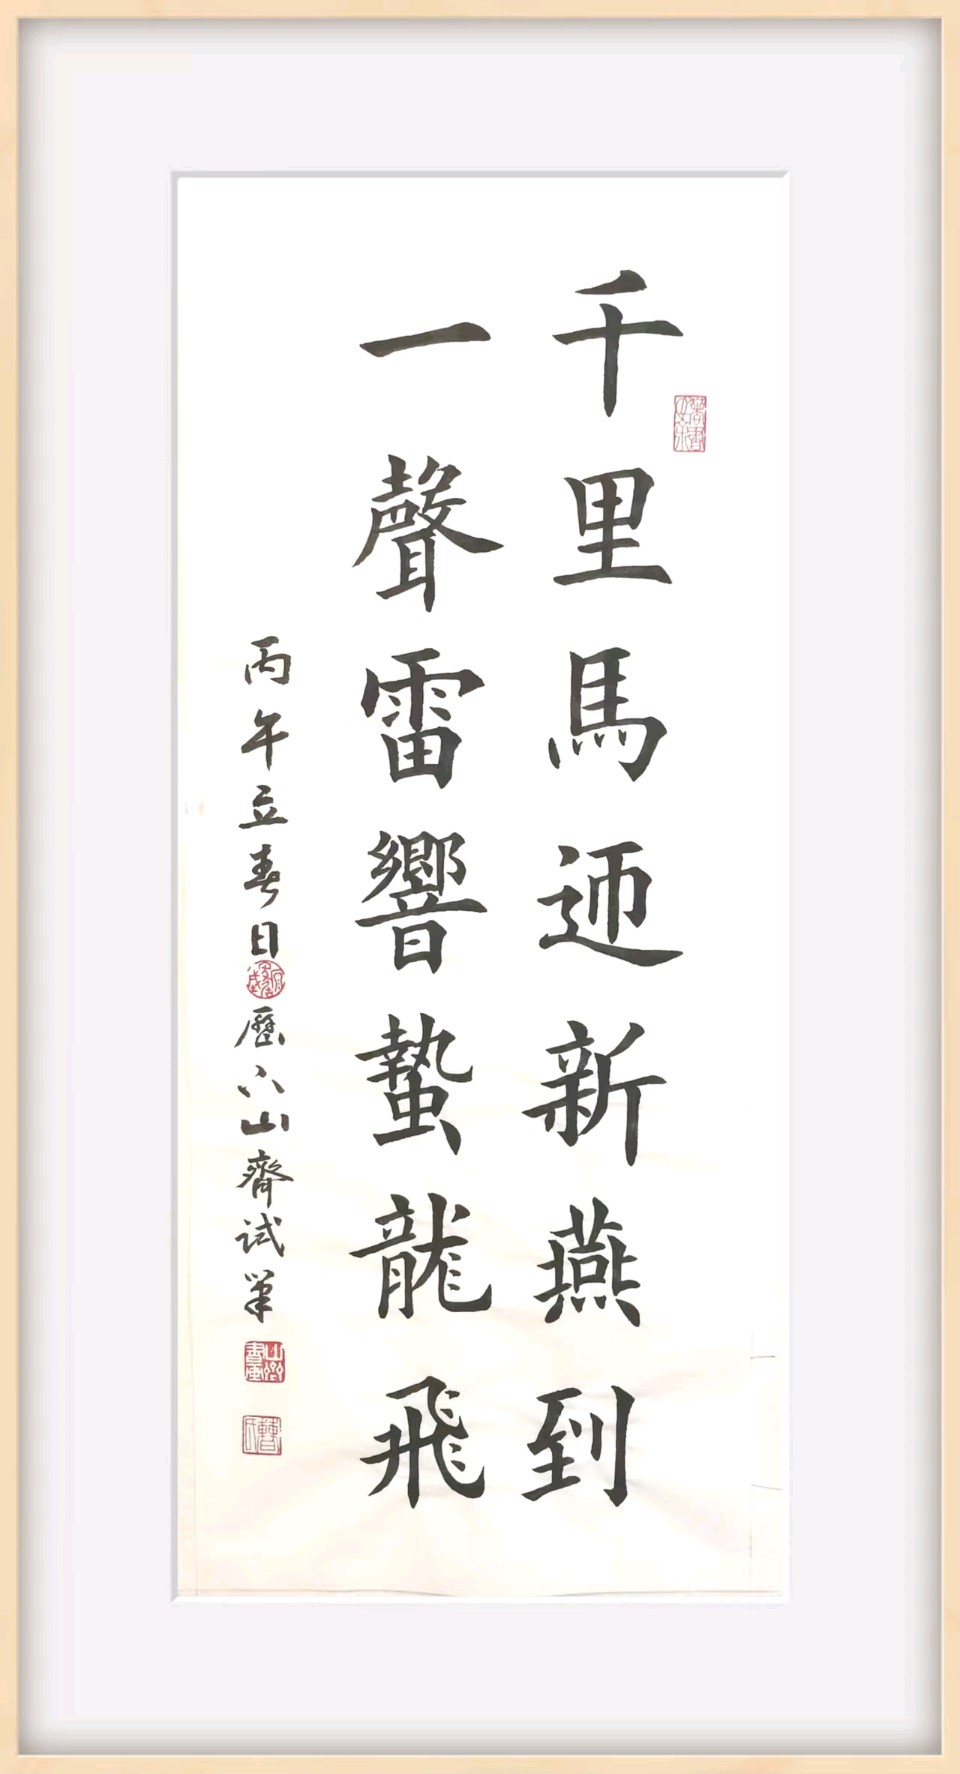 千里馬迎新燕到
一聲雷響蟄龍飛
丙午立春日歷下山齊試筆